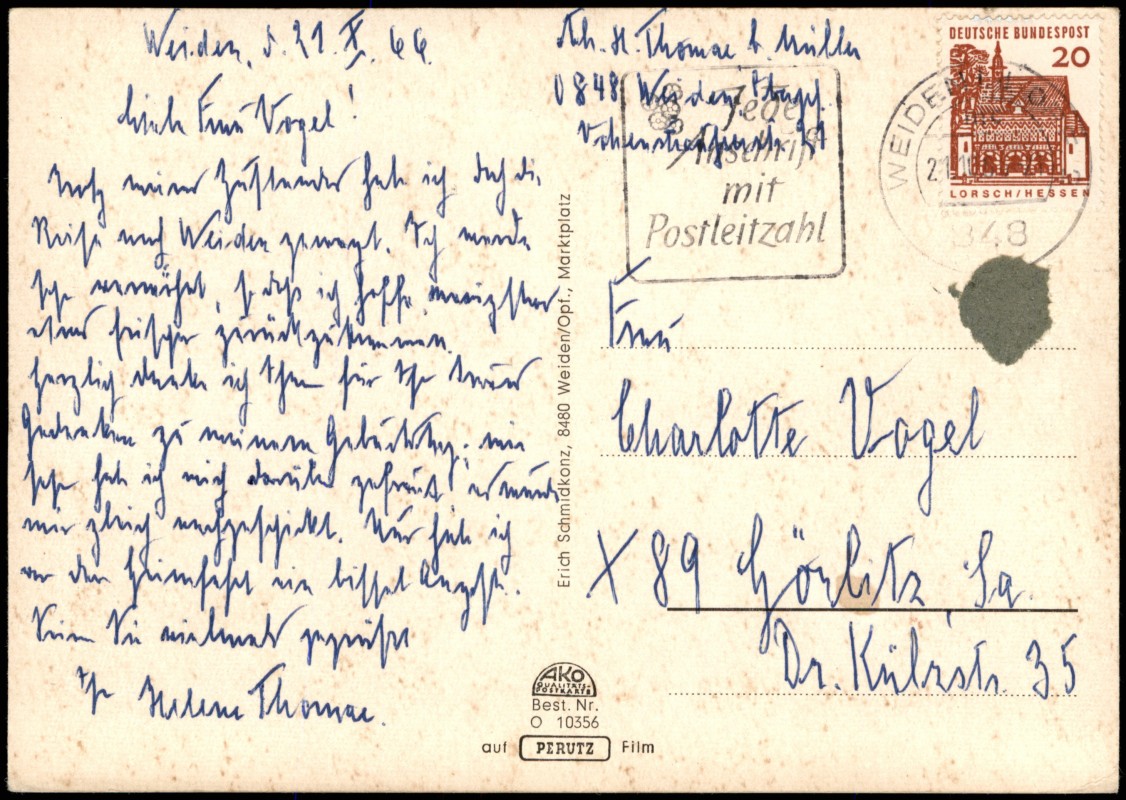 Weiden, d. 21. X. 66
Liebe Frau Vogel!
Trotz meines Zustandes habe ich doch die
Reise nach Weiden gewagt. Ich werde
sehr verwöhnt, so dass ich hoffe, wenigstens
etwas frischer zurückzukommen.
Herzlich danke ich Ihnen für Ihr treues
Gedenken zu meinem Geburtstag,
sehr hab ich mich darüber gefreut es wurde
mir gleich nachgeschickt. Nur habe ich
vor der Heimfahrt ein bissel Angst.
Seien Sie vielmals gegrüßt
Ihre Helene Thomae.
Abs. H. Thomae b. Müller
848 Weiden Opf.
DEUTSCHE BUNDESPOST
20
LORSCH/HESSEN
WEIDEN
848
Jede
Anschrift
mit
Postleitzahl
Frau
Charlotte Vogel
X 89 Görlitz, Sa.
Dr. Külzstr. 35
Erich Schmidkonz, 8480 Weiden/Opf., Marktplatz
AKO
QUALITÄTS-
POSTKARTE
Best. Nr.
O 10356
auf PERUTZ Film